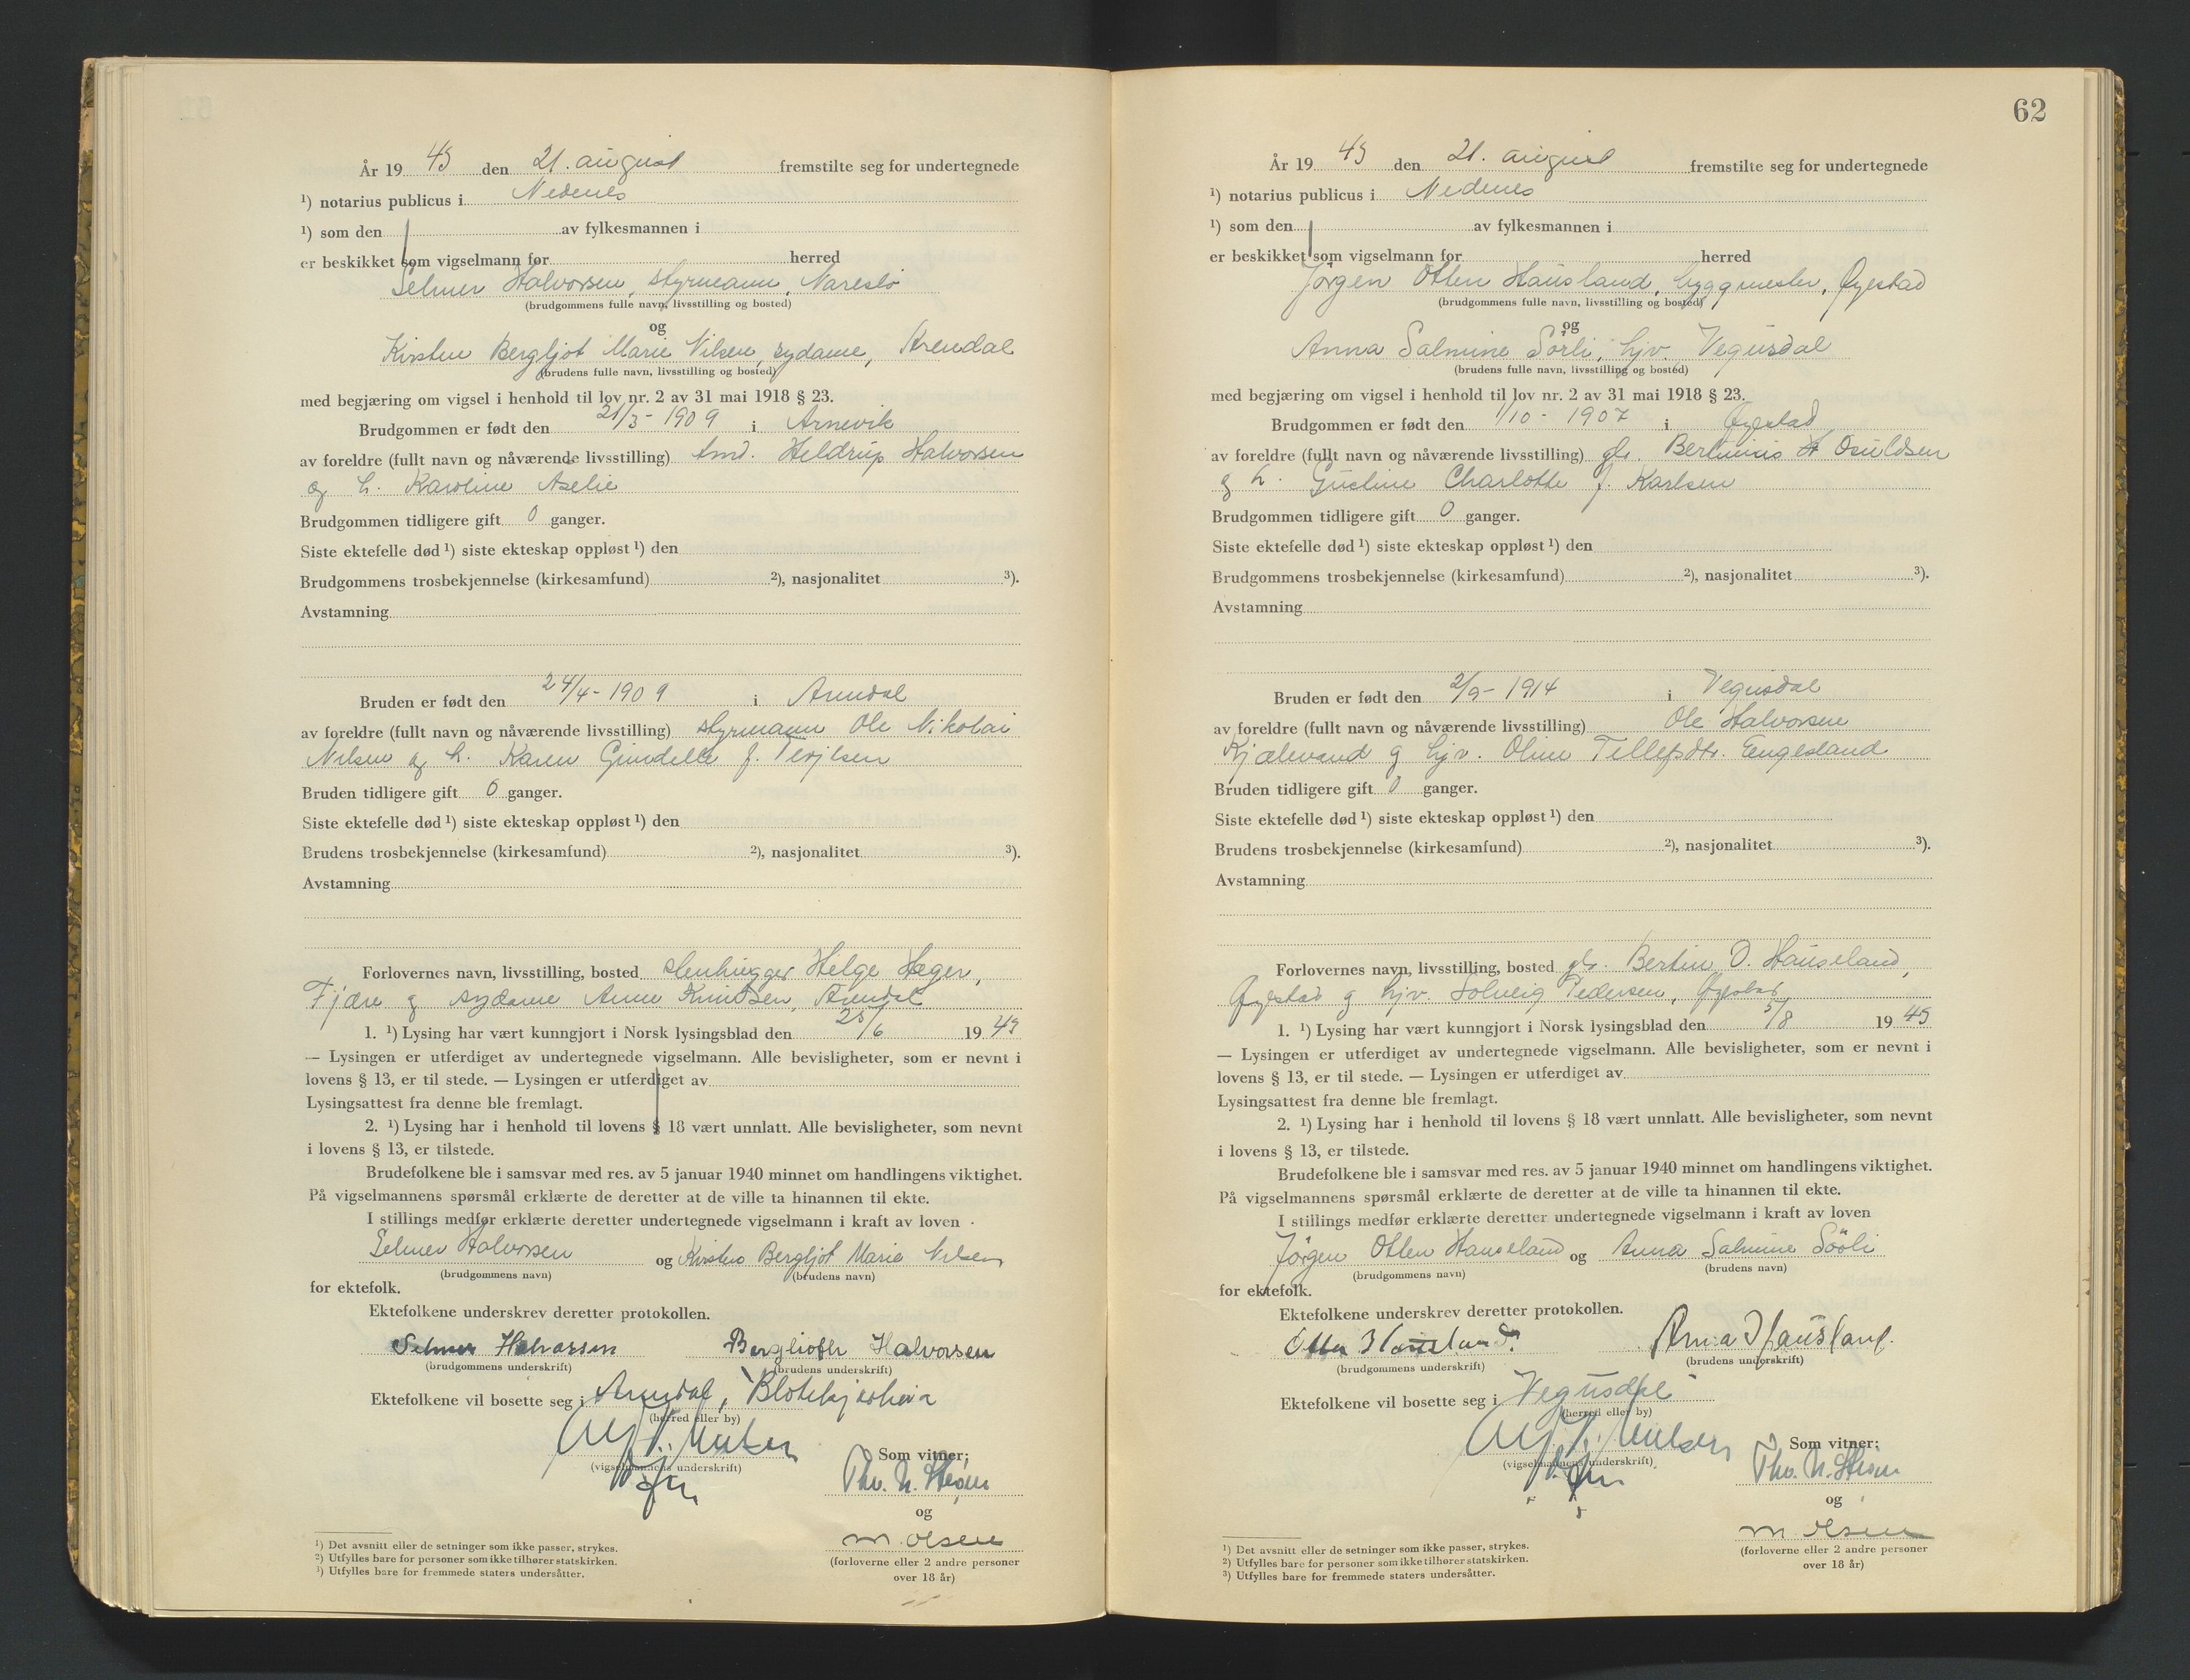 År 19 43 den 21. august fremstilte seg for undertegnede
¹) notarius publicus i Nedenes
¹) som den av fylkesmannen i
er beskikket som vigselmann for herred
Selmer Halvorsen, styrmann, Nareslö
(brudgommens fulle navn, livsstilling og bosted)
og
Kirsten Bergljot Marie Nilsen, sydame, Arendal
(brudens fulle navn, livsstilling og bosted)
med begjæring om vigsel i henhold til lov nr. 2 av 31 mai 1918 § 23.
Brudgommen er født den 21/3 - 1909 i Arnevik
av foreldre (fullt navn og nåværende livsstilling) Heldrup Halvorsen
og h. Karoline Aselie
Brudgommen tidligere gift 0 ganger.
Siste ektefelle død ¹) siste ekteskap oppløst ¹) den
Brudgommens trosbekjennelse (kirkesamfund) ²), nasjonalitet ³).
Avstamning
Bruden er født den 24/4 - 1909 i Arendal
av foreldre (fullt navn og nåværende livsstilling) styrmann Ole Nikolai
Nilsen og h. Karen Gundelle f. Terjesen
Bruden tidligere gift 0 ganger.
Siste ektefelle død ¹) siste ekteskap oppløst ¹) den
Brudens trosbekjennelse (kirkesamfund) ²), nasjonalitet ³).
Avstamning
Forlovernes navn, livsstilling, bosted stenhugger Helge Hæger,
Fjære og sydame Anne Knudsen, Arendal
1. ¹) Lysing har vært kunngjort i Norsk lysingsblad den 25/6 19 43
— Lysingen er utferdiget av undertegnede vigselmann. Alle bevisligheter, som er nevnt i
lovens § 13, er til stede. — Lysingen er utferdiget av
Lysingsattest fra denne ble fremlagt.
2. ¹) Lysing har i henhold til lovens § 18 vært unnlatt. Alle bevisligheter, som nevnt
i lovens § 13, er tilstede.
Brudefolkene ble i samsvar med res. av 5 januar 1940 minnet om handlingens viktighet.
På vigselmannens spørsmål erklærte de deretter at de ville ta hinannen til ekte.
I stillings medfør erklærte deretter undertegnede vigselmann i kraft av loven
Selmer Halvorsen og Kirsten Bergljot Marie Nilsen
(brudgommens navn) (brudens navn)
for ektefolk.
Ektefolkene underskrev deretter protokollen.
Selmer Halvorsen Berglioth Halvorsen
(brudgommens underskrift) (brudens underskrift)
Ektefolkene vil bosette seg i Arendal, Blötekjærheia
(herred eller by)
Som vitner:
(vigselmannens underskrift)
Tho. N.
og
M. Olsen
(forloverne eller 2 andre personer
over 18 år)
¹) Det avsnitt eller de setninger som ikke passer, strykes.
²) Utfylles bare for personer som ikke tilhører statskirken.
³) Utfylles bare for fremmede staters undersåtter.
62
År 19 43 den 21. august fremstilte seg for undertegnede
¹) notarius publicus i Nedenes
¹) som den av fylkesmannen i
er beskikket som vigselmann for herred
Jörgen Otten Hausland, byggmester, Öyestad
(brudgommens fulle navn, livsstilling og bosted)
og
Anna Salmine Sörli, hjv. Vegusdal
(brudens fulle navn, livsstilling og bosted)
med begjæring om vigsel i henhold til lov nr. 2 av 31 mai 1918 § 23.
Brudgommen er født den 1/10 - 1907 i Öyestad
av foreldre (fullt navn og nåværende livsstilling) Osuldsen
og h. Gustine Charlotte f. Karlsen
Brudgommen tidligere gift 0 ganger.
Siste ektefelle død ¹) siste ekteskap oppløst ¹) den
Brudgommens trosbekjennelse (kirkesamfund) ²), nasjonalitet ³).
Avstamning
Bruden er født den 2/9 - 1914 i Vegusdal
av foreldre (fullt navn og nåværende livsstilling) Ole Halvorsen
Kjælevand og hjv. Oline Tellefsdtr. Engesland
Bruden tidligere gift 0 ganger.
Siste ektefelle død ¹) siste ekteskap oppløst ¹) den
Brudens trosbekjennelse (kirkesamfund) ²), nasjonalitet ³).
Avstamning
Forlovernes navn, livsstilling, bosted Bertin O. Hauseland,
Öyestad og hjv. Solveig Pedersen, Öyestad
1. ¹) Lysing har vært kunngjort i Norsk lysingsblad den 5/8 19 43
— Lysingen er utferdiget av undertegnede vigselmann. Alle bevisligheter, som er nevnt i
lovens § 13, er til stede. — Lysingen er utferdiget av
Lysingsattest fra denne ble fremlagt.
2. ¹) Lysing har i henhold til lovens § 18 vært unnlatt. Alle bevisligheter, som nevnt
i lovens § 13, er tilstede.
Brudefolkene ble i samsvar med res. av 5 januar 1940 minnet om handlingens viktighet.
På vigselmannens spørsmål erklærte de deretter at de ville ta hinannen til ekte.
I stillings medfør erklærte deretter undertegnede vigselmann i kraft av loven
Jörgen Otten Hauseland og Anna Salmine Sörli
(brudgommens navn) (brudens navn)
for ektefolk.
Ektefolkene underskrev deretter protokollen.
Otten Hausland. Anna Hausland.
(brudgommens underskrift) (brudens underskrift)
Ektefolkene vil bosette seg i Vegusdal
(herred eller by)
Som vitner:
(vigselmannens underskrift)
Tho. N.
og
M. Olsen
(forloverne eller 2 andre personer
over 18 år)
¹) Det avsnitt eller de setninger som ikke passer, strykes.
²) Utfylles bare for personer som ikke tilhører statskirken.
³) Utfylles bare for fremmede staters undersåtter.